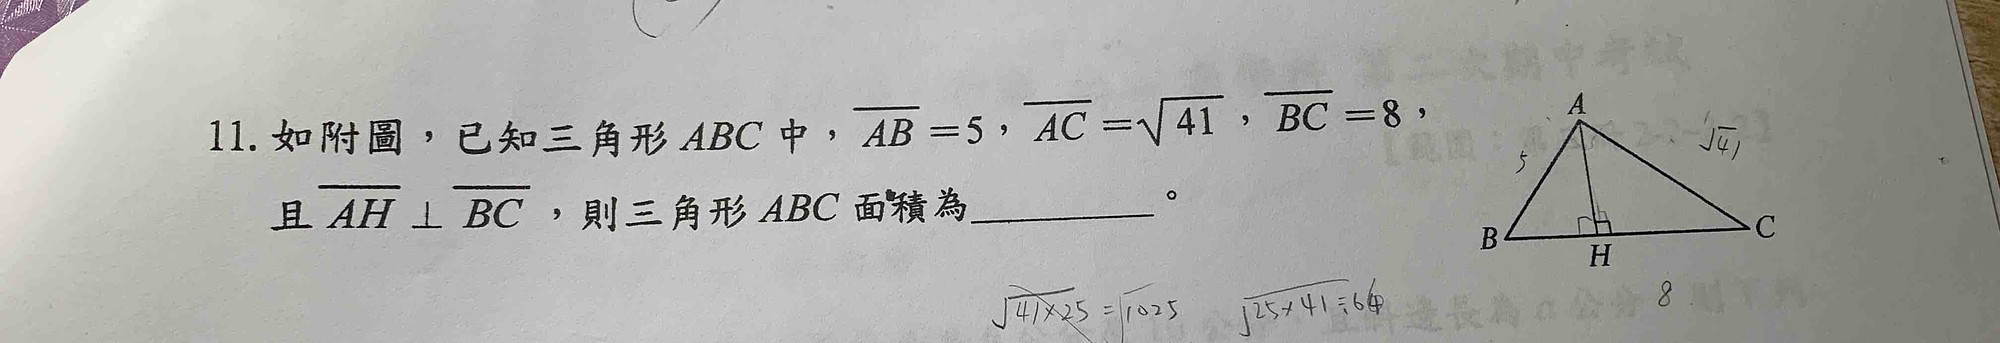 11. 如附圖，已知三角形 ABC 中，AB = 5，AC = √41，BC = 8，
且 AH ⊥ BC，則三角形 ABC 面積為＿＿＿＿＿。
A
5
√41
B
H
C
8
√41×25 = √1025
√25+41 = 64